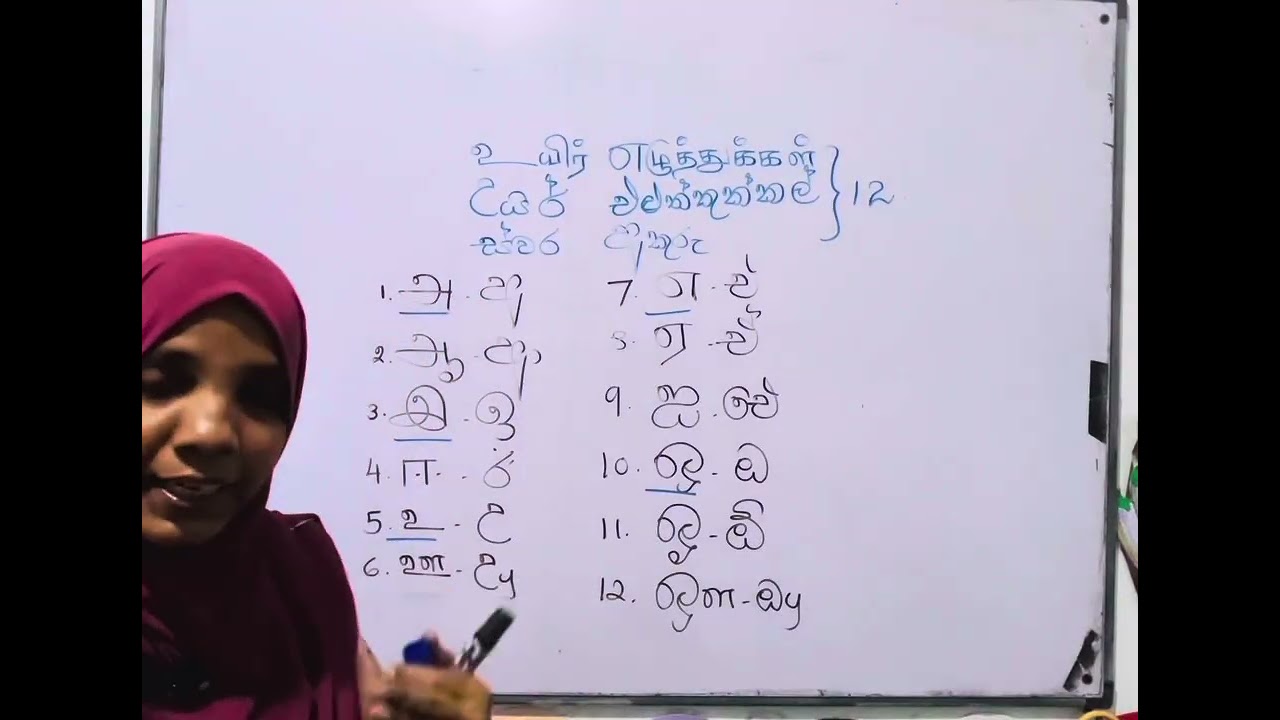 உயிர் எழுத்துக்கள் } 12
උයිර් එළුත්තුක්කල්
ස්වර අකුරු
1. அ - අ
2. ஆ - ආ
3. இ - ඉ
4. ஈ - ඊ
5. உ - උ
6. ஊ - ඌ
7. எ - එ
8. ஏ - ඒ
9. ஐ - ඓ
10. ஒ - ඔ
11. ஓ - ඕ
12. ஔ - ඖ